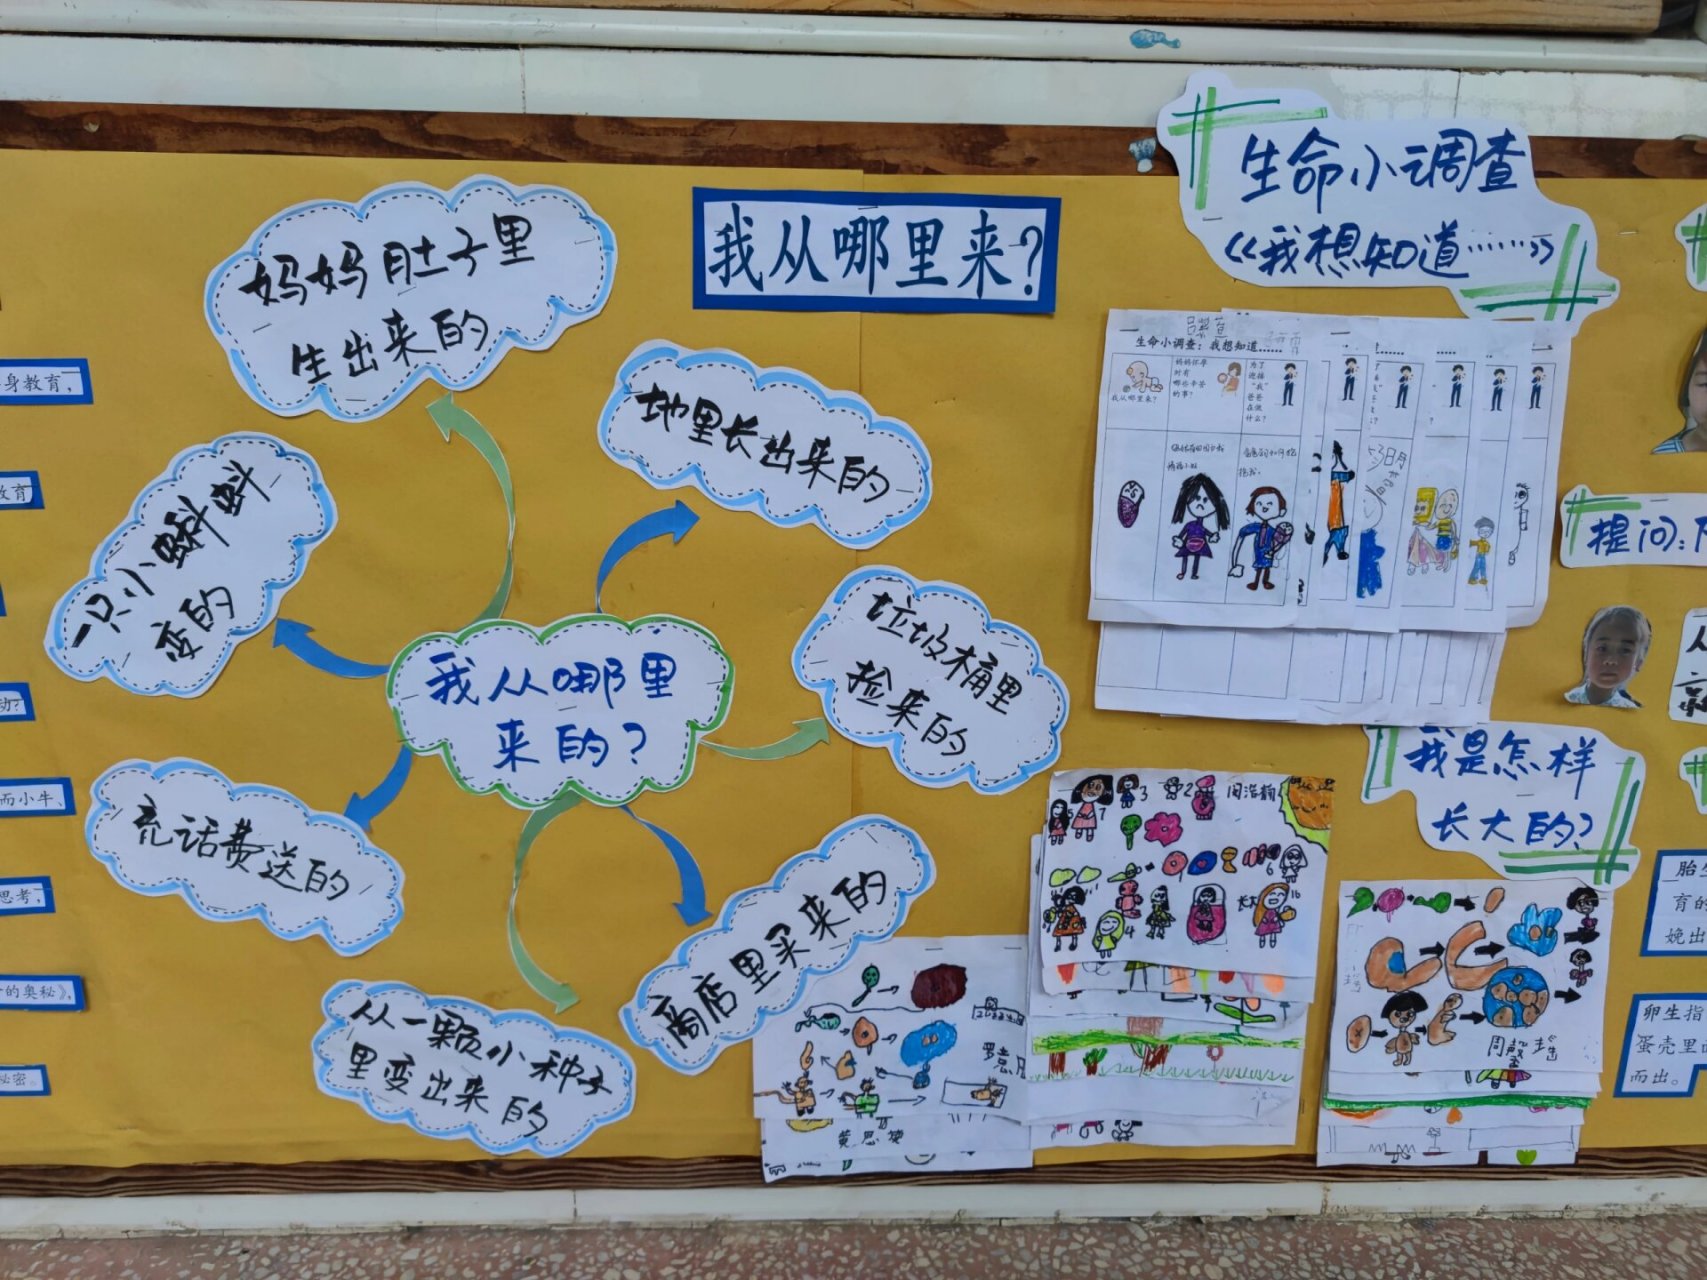 我从哪里来?
生命小调查
《我想知道……》
妈妈肚子里
生出来的
地里长出来的
一只小蝌蚪
变的
垃圾桶里
捡来的
我从哪里
来的?
充话费送的
商店里买来的
从一颗小种子
里变出来的
生命小调查：我想知道……
我从哪里来?
妈妈怀孕
时有
哪些辛苦
的事?
为了
迎接
“我”
爸爸
在做
什么?
提问:
我是怎样
长大的?
身教育,
教育
动?
而小牛、
思考,
的奥秘》,
秘密。
胎生
育的
娩出
卵生指
蛋壳里
而出。
长大